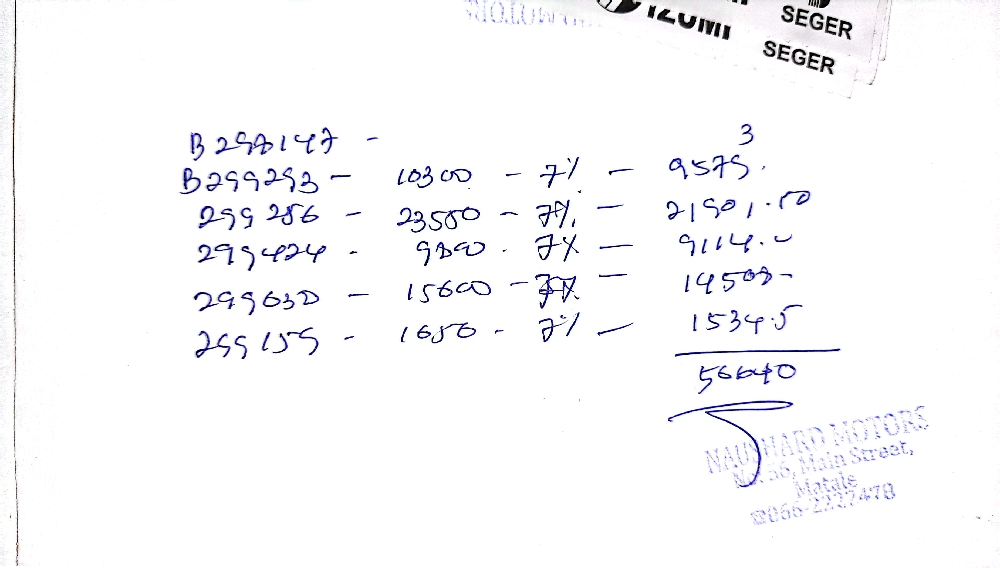 IZUMI
SEGER
SEGER
B298147 -
3
B299293 - 10300 - 7% - 9579.
299286 - 23550 - 7% - 21901.50
299424 - 9800 - 7% - 9114.-
299630 - 15600 - 7% - 14508-
299159 - 1650 - 7% - 1534.5
56640
NAUSHARD MOTORS
No. 56, Main Street,
Matale
☎066-2227478